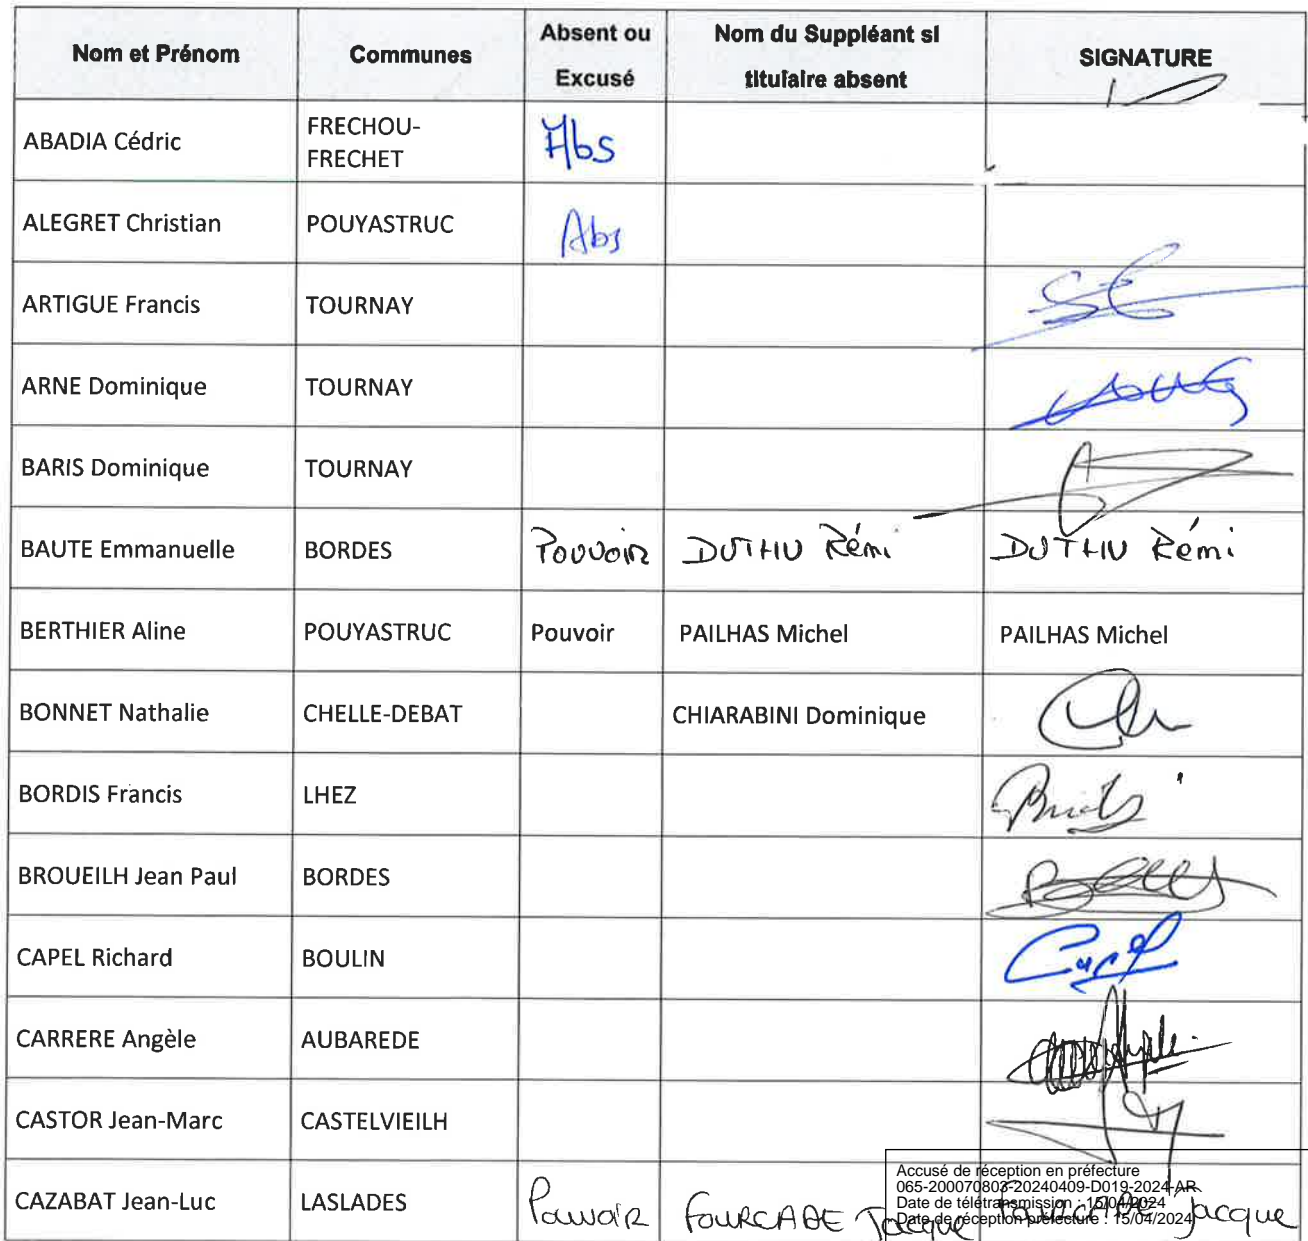 Nom et Prénom Communes Absent ou Excusé Nom du Suppléant si titulaire absent SIGNATURE
ABADIA Cédric FRECHOU-FRECHET Abs
ALEGRET Christian POUYASTRUC Abs
ARTIGUE Francis TOURNAY
ARNE Dominique TOURNAY
BARIS Dominique TOURNAY
BAUTE Emmanuelle BORDES Pouvoir DUTHU Rémi DUTHU Rémi
BERTHIER Aline POUYASTRUC Pouvoir PAILHAS Michel PAILHAS Michel
BONNET Nathalie CHELLE-DEBAT CHIARABINI Dominique
BORDIS Francis LHEZ
BROUEILH Jean Paul BORDES
CAPEL Richard BOULIN Capel
CARRERE Angèle AUBAREDE
CASTOR Jean-Marc CASTELVIEILH
CAZABAT Jean-Luc LASLADES Pouvoir FOURCADE Jacque FOURCADE Jacque
Accusé de réception en préfecture
065-200070803-20240409-D019-2024-AR
Date de télétransmission : 15/04/2024
Date de réception préfecture : 15/04/2024